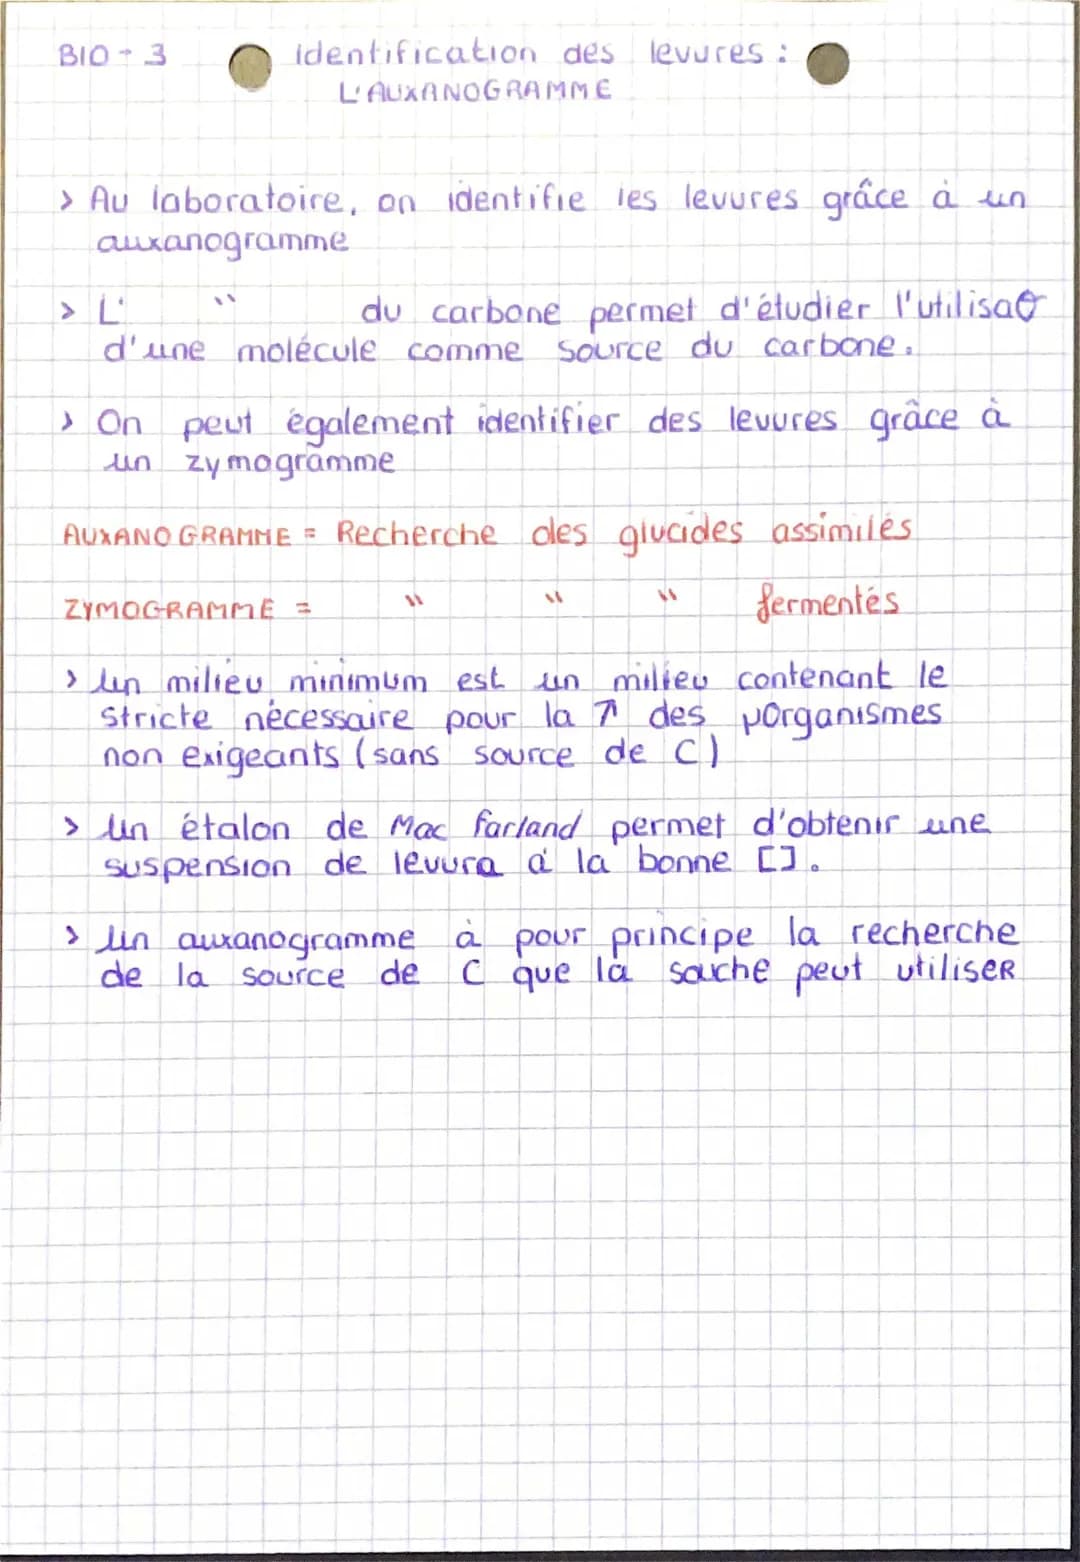 BIO - 3 identification des levures :
L'AUXANOGRAMME
> Au laboratoire, on identifie les levures grâce à un
auxanogramme
> L' " du carbone permet d'étudier l'utilisa°
d'une molécule comme source du carbone.
> On peut également identifier des levures grâce à
un zymogramme
AUXANOGRAMME = Recherche des glucides assimilés
ZYMOGRAMME = " " " fermentés
> Un milieu minimum est un milieu contenant le
stricte nécessaire pour la ↗ des µorganismes
non exigeants (sans source de C)
> Un étalon de Mac farland permet d'obtenir une
suspension de levura à la bonne [].
> Un auxanogramme à pour principe la recherche
de la source de C que la souche peut utiliser